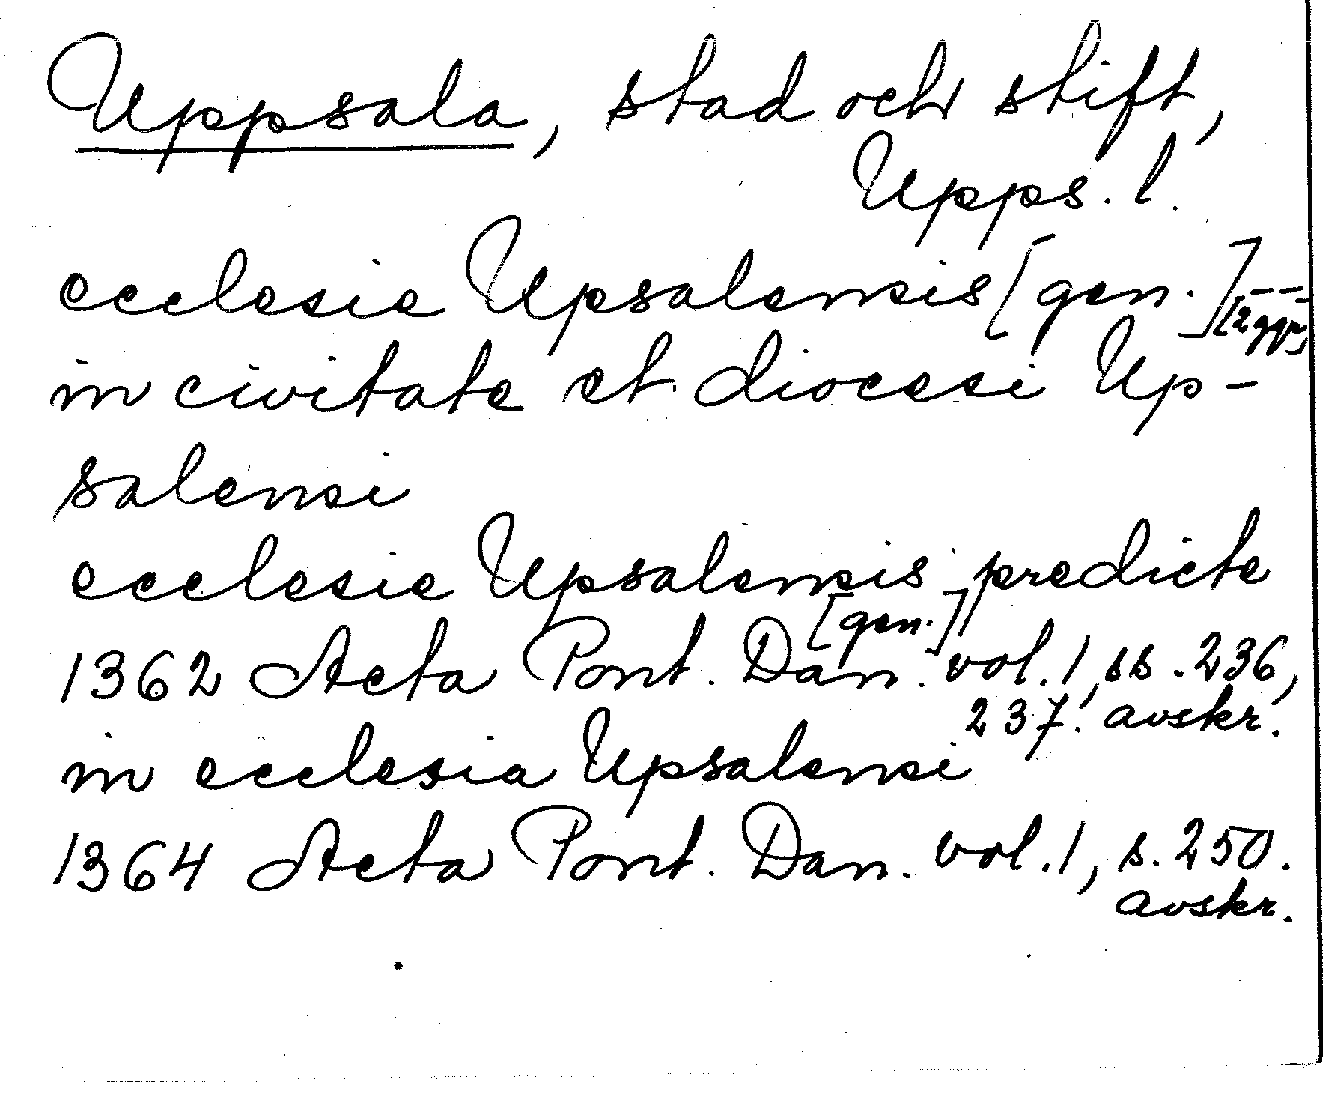 Uppsala, stad och stift,
Upps. l.
ecclesie Upsalensis [gen.] --
[2 ggr]
in civitate et diocesi Up-
salensi
ecclesie Upsalensis predicte
[gen.]
1362 Acta Pont. Dan. vol. 1, ss. 236,
237. avskr.
in ecclesia Upsalensi
1364 Acta Pont. Dan. vol. 1, s. 250.
avskr.